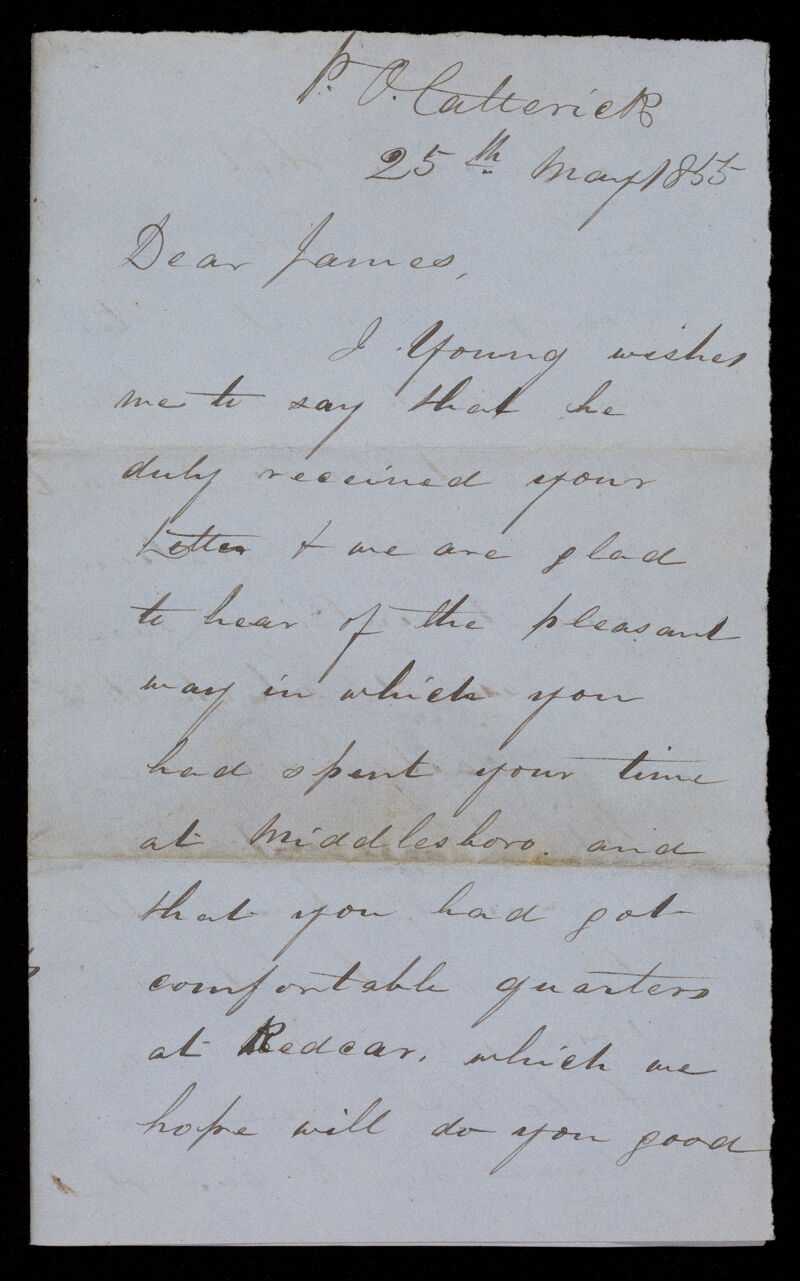 P. O. Catterick
25th May 1855
Dear James,
J. Young wishes
me to say that he
duly received your
Letter & we are glad
to hear of the pleasant
way in which you
had spent your time
at Middlesboro. and
that you had got
comfortable quarters
at Redcar, which we
hope will do you good